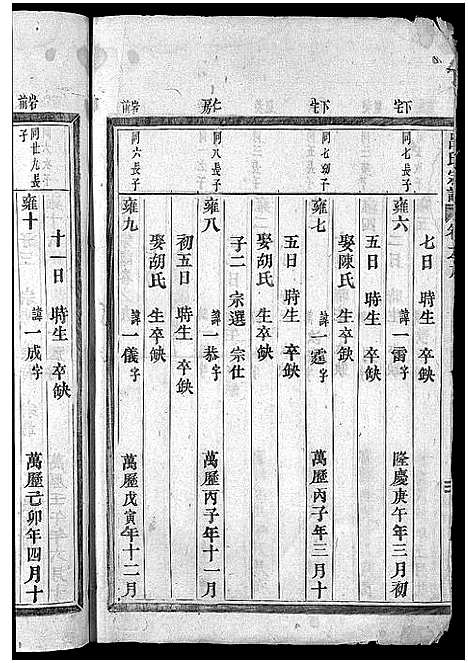 下宅
同七長子
雍六 諱一雷字 隆慶庚午年三月初
七日 時生 卒缺
娶陳氏 生卒缺
下宅
同七幼子
雍七 諱一霆字 萬曆丙子年三月十
五日 時生 卒缺
娶胡氏 生卒缺
子二 宗選 宗仕
仁房
同八長子
雍八 諱一恭字 萬曆丙子年十一月
初五日 時生 卒缺
娶胡氏 生卒缺
岩前
同六長子
雍九 諱一儀字 萬曆戊寅年十二月
十一日 時生 卒缺
岩前
同廿九長子
雍十 諱一成字 萬曆己卯年四月十